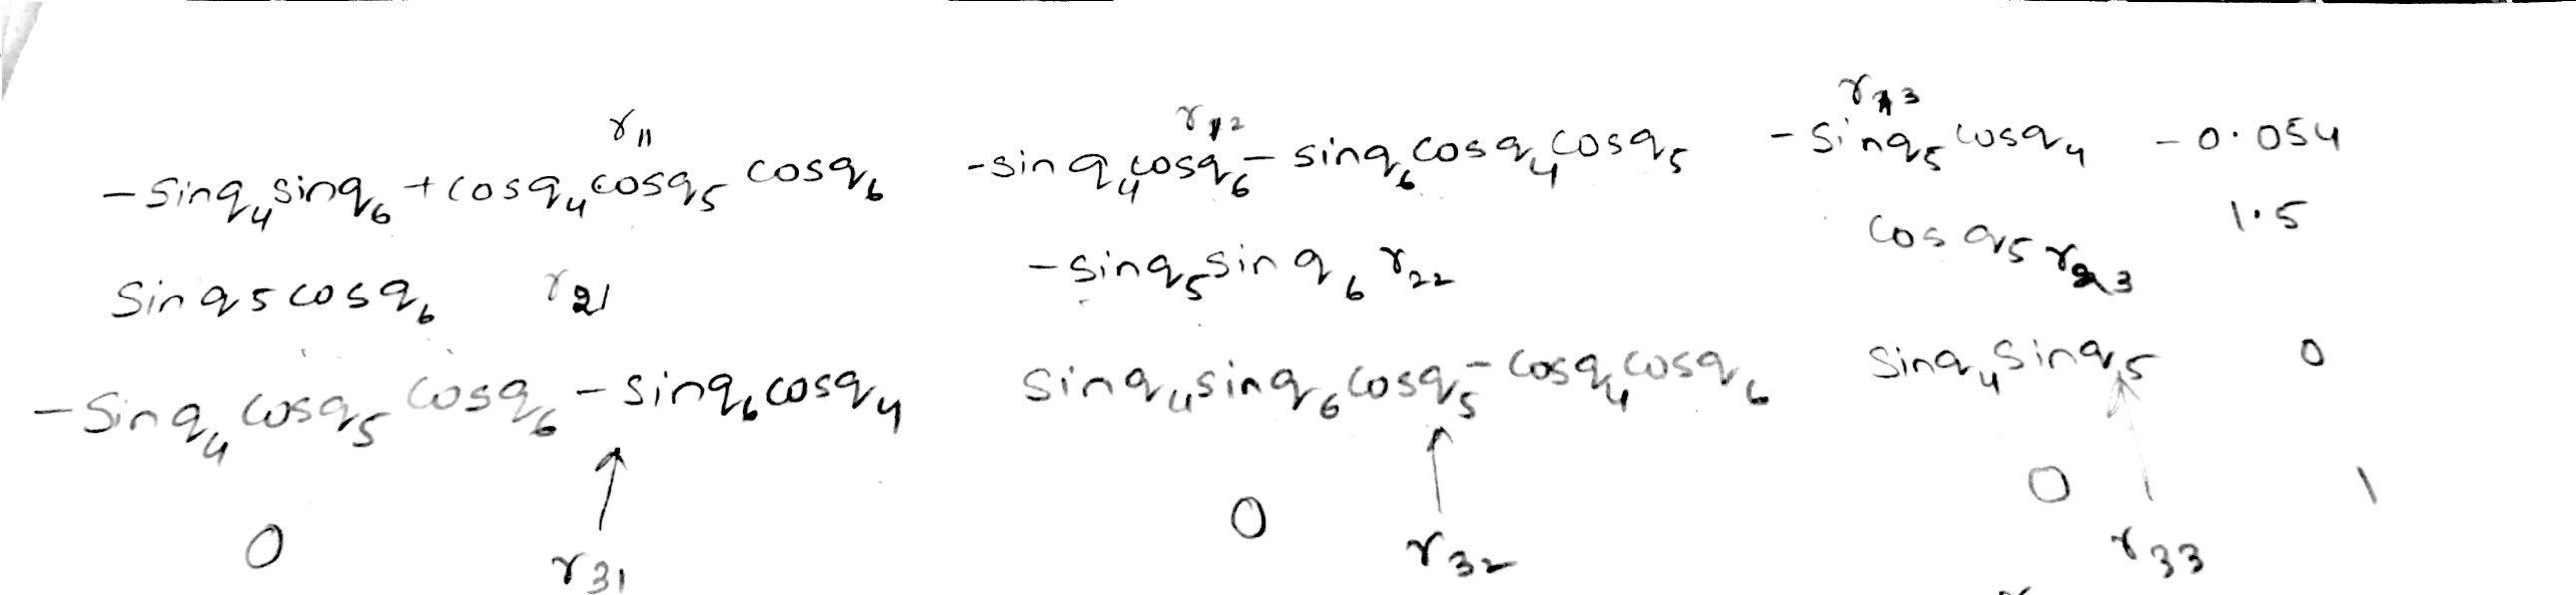 r11 r12 r13
-sinq4sinq6+cosq4cosq5 cosq6 -sinq4cosq6-sinq6cosq4cosq5 -sinq5cosq4 -0.054
sinq5cosq6 r21 -sinq5sinq6 r22 cosq5 r23 1.5
-sinq4 cosq5 cosq6 -sinq6cosq4 sinq4sinq6cosq5-cosq4cosq6 sinq4sinq5 0
0 0 0 1
r31 r32 r33